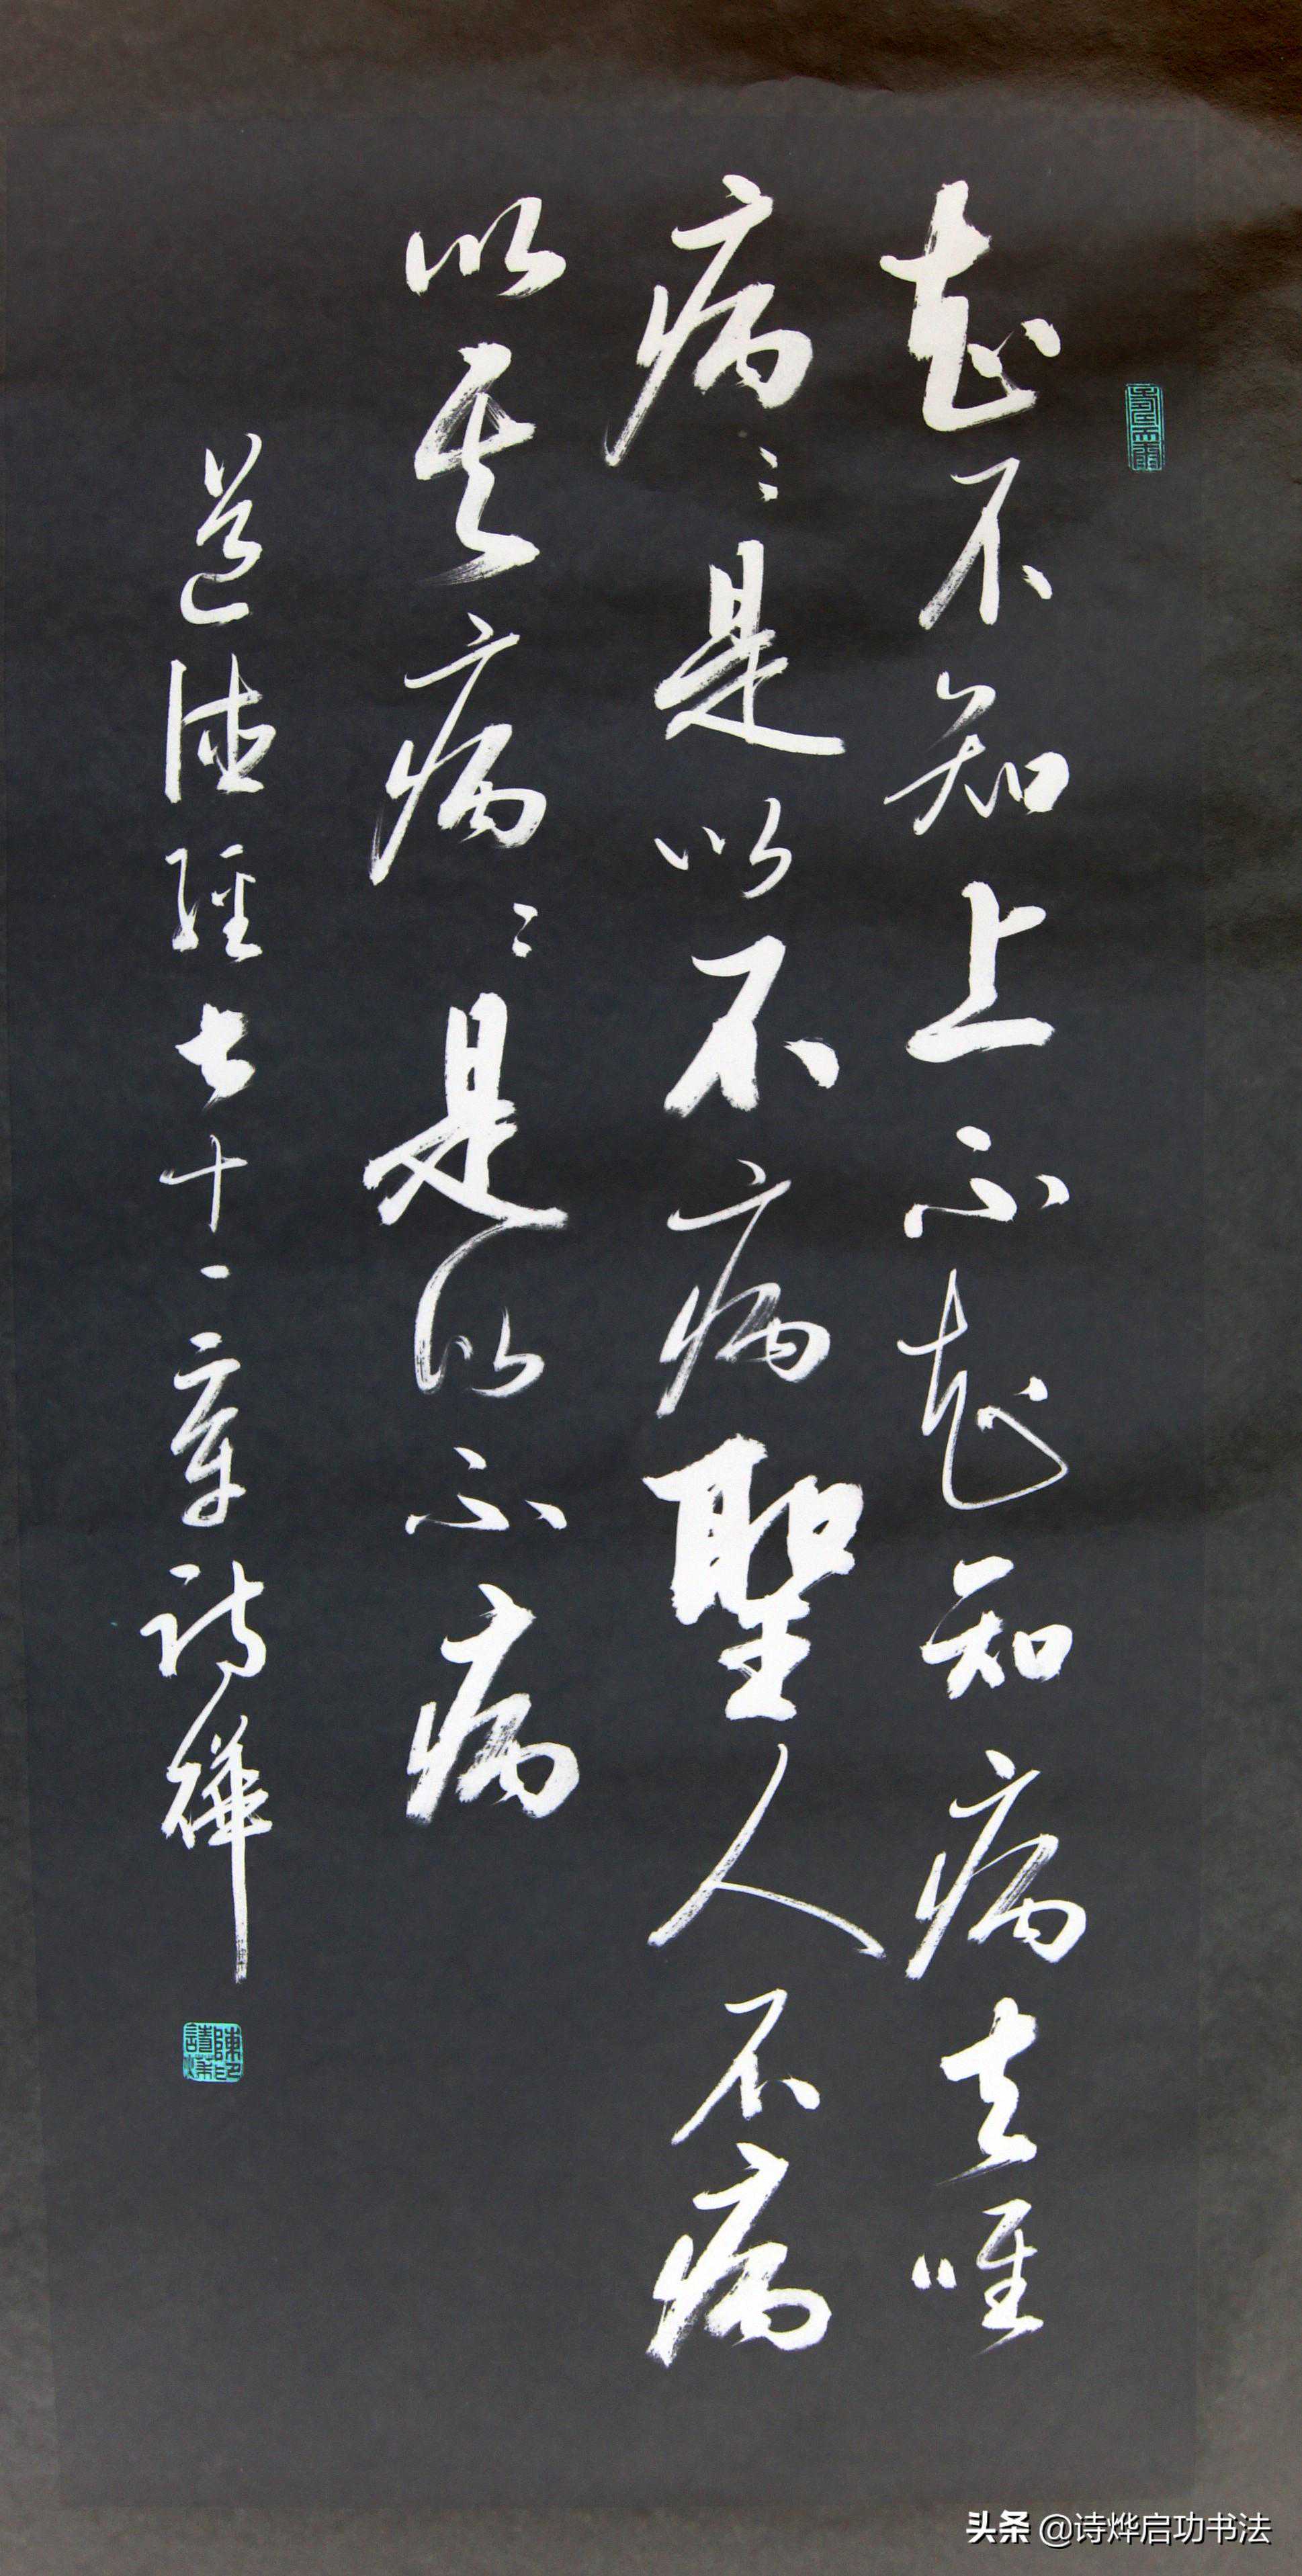 知不知上不知知病夫唯
病〻是以不病聖人不病
以其病〻是以不病
道德經七十一章诗燁
陳詩燁印
头条 @诗烨启功书法